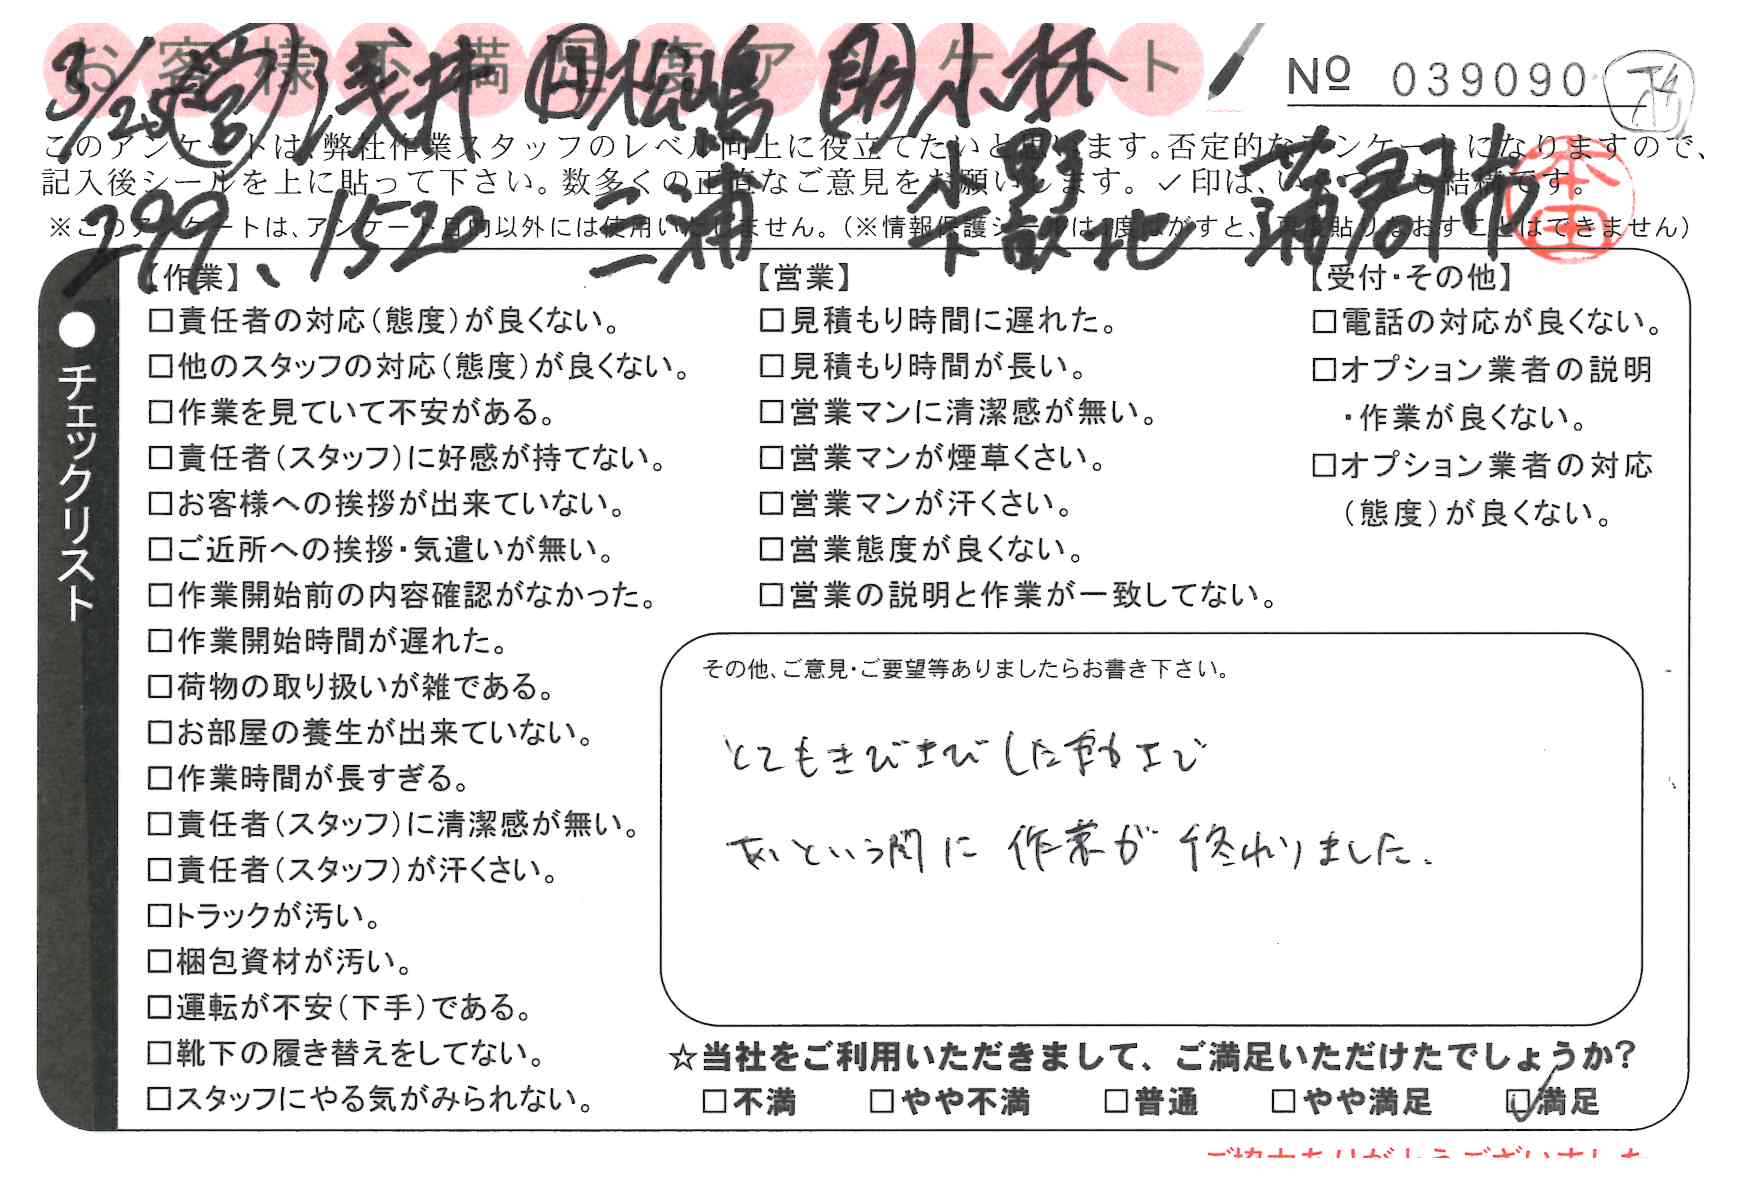 お客様不満足度アンケート
No 039090
3/25 営 浅井 回 松嶋 助 小林
このアンケートは、弊社作業スタッフのレベル向上に役立てたいと思います。否定的なアンケートになりますので、
記入後シールを上に貼って下さい。数多くの正直なご意見をお願いします。✓印は、いくつでも結構です。
※このアンケートは、アンケート目的以外には使用いたしません。（※情報保護シールは1度はがすと、再度貼りなおすことはできません）
299、1520 三浦 蒲郡市
本田
●チェックリスト
【作業】
□責任者の対応（態度）が良くない。
□他のスタッフの対応（態度）が良くない。
□作業を見ていて不安がある。
□責任者（スタッフ）に好感が持てない。
□お客様への挨拶が出来ていない。
□ご近所への挨拶・気遣いが無い。
□作業開始前の内容確認がなかった。
□作業開始時間が遅れた。
□荷物の取り扱いが雑である。
□お部屋の養生が出来ていない。
□作業時間が長すぎる。
□責任者（スタッフ）に清潔感が無い。
□責任者（スタッフ）が汗くさい。
□トラックが汚い。
□梱包資材が汚い。
□運転が不安（下手）である。
□靴下の履き替えをしてない。
□スタッフにやる気がみられない。
【営業】
□見積もり時間に遅れた。
□見積もり時間が長い。
□営業マンに清潔感が無い。
□営業マンが煙草くさい。
□営業マンが汗くさい。
□営業態度が良くない。
□営業の説明と作業が一致してない。
【受付・その他】
□電話の対応が良くない。
□オプション業者の説明
・作業が良くない。
□オプション業者の対応
（態度）が良くない。
その他、ご意見・ご要望等ありましたらお書き下さい。
とてもきびきびした動きで
あっという間に 作業が 終わりました。
☆当社をご利用いただきまして、ご満足いただけたでしょうか？
□不満 □やや不満 □普通 □やや満足 ☑満足
ご協力ありがとうございました